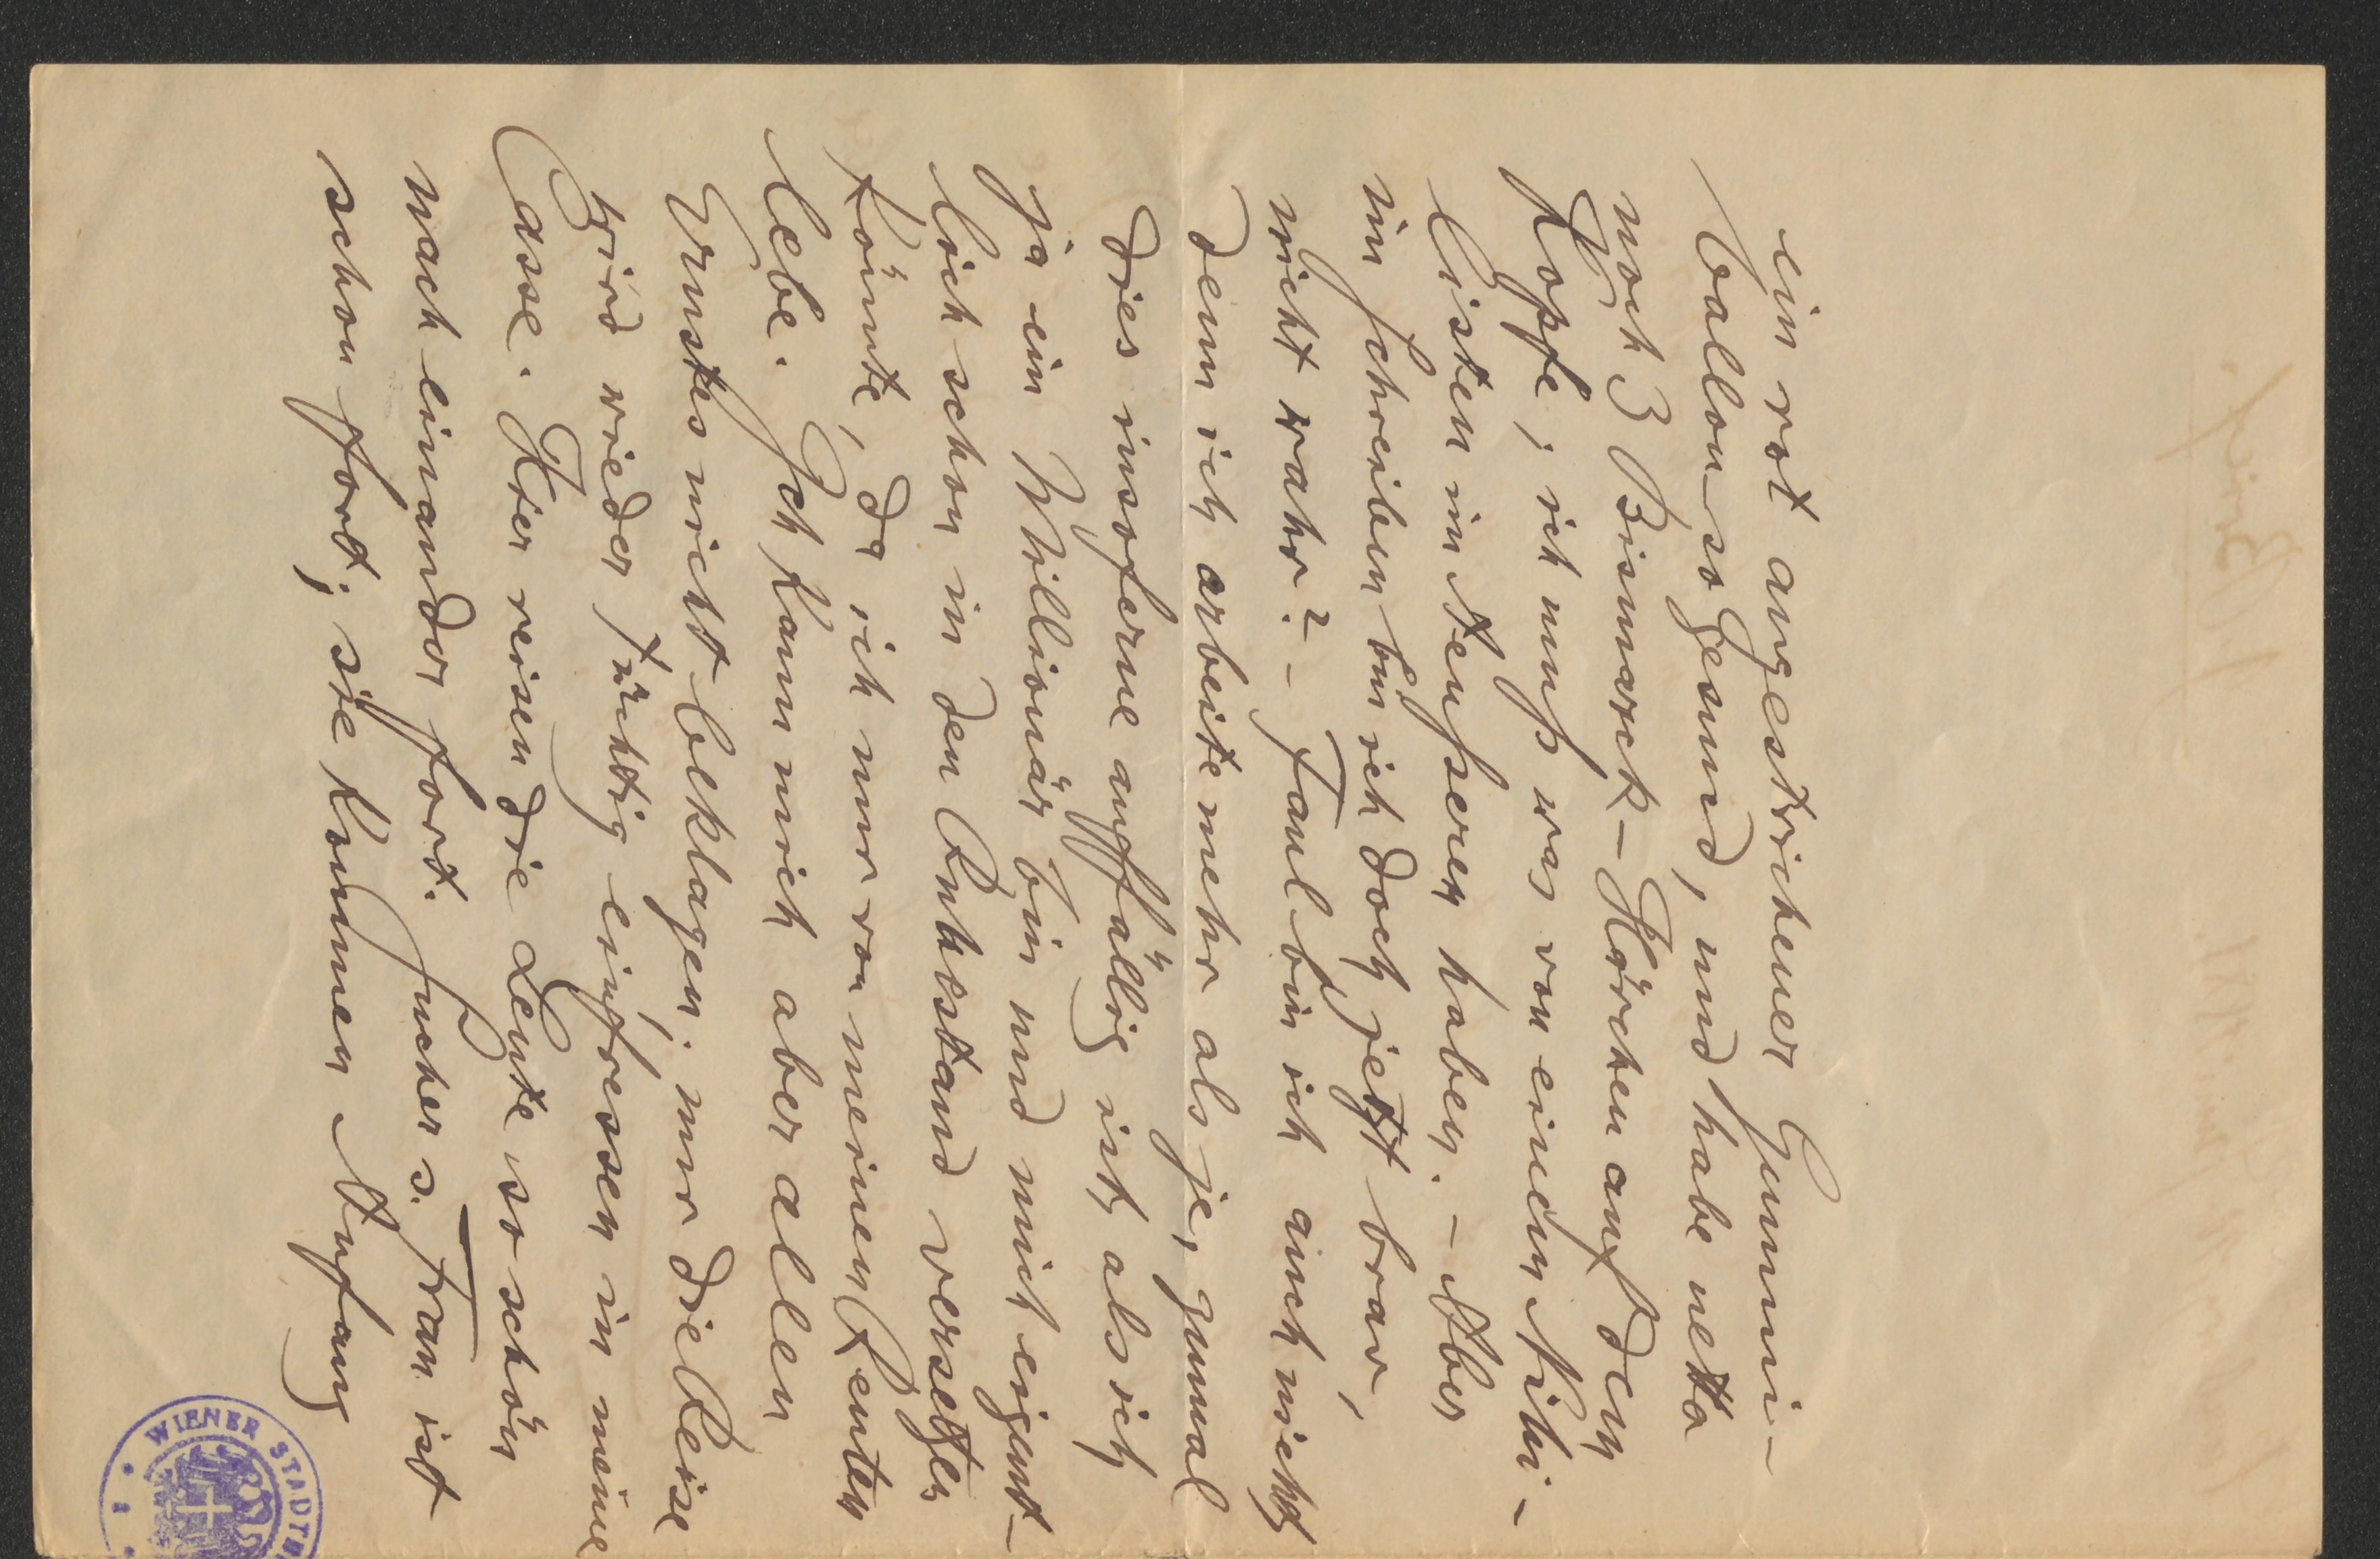 ein rot angestrichener Gummi-
ballon so gesund, und habe netto
noch 3 Bismarck-Härchen auf dem
Kopfe; ich muß was von einem Nihi-
listen im Äußeren haben. - Aber
im Schreiben bin ich doch jetzt brav,
nicht wahr? - Faul bin ich auch nicht
denn ich arbeite mehr als je, zumal
dies insoferne auffällig ist, als ich
ja ein Millionär bin und mich eigent-
lich schon in den Ruhestand versetzen
könnte, da ich nur von meinen Renten
lebe. Ich kann mich aber allen
Ernstes nicht beklagen; nur die Reise
wird wieder tüchtig einfressen in meine
Casse. Hier reisen die Leute so schön
nach einander fort. Fuchs s. Frau ist
schon fort; sie kommen Anfang
WIENER STADTB